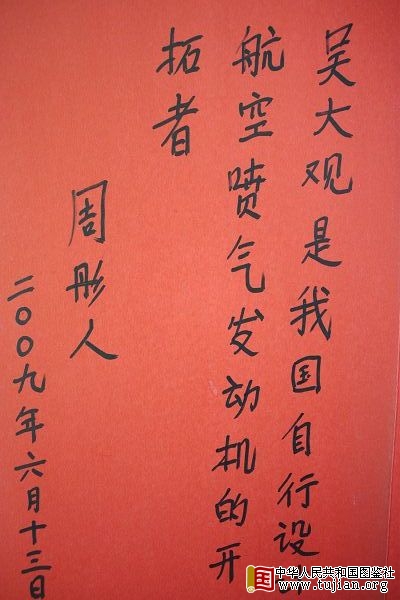 吴大观是我国自行设
航空喷气发动机的开
拓者
周彤人
二〇〇九年六月十三日
中华人民共和国图鉴社
www.tujian.org